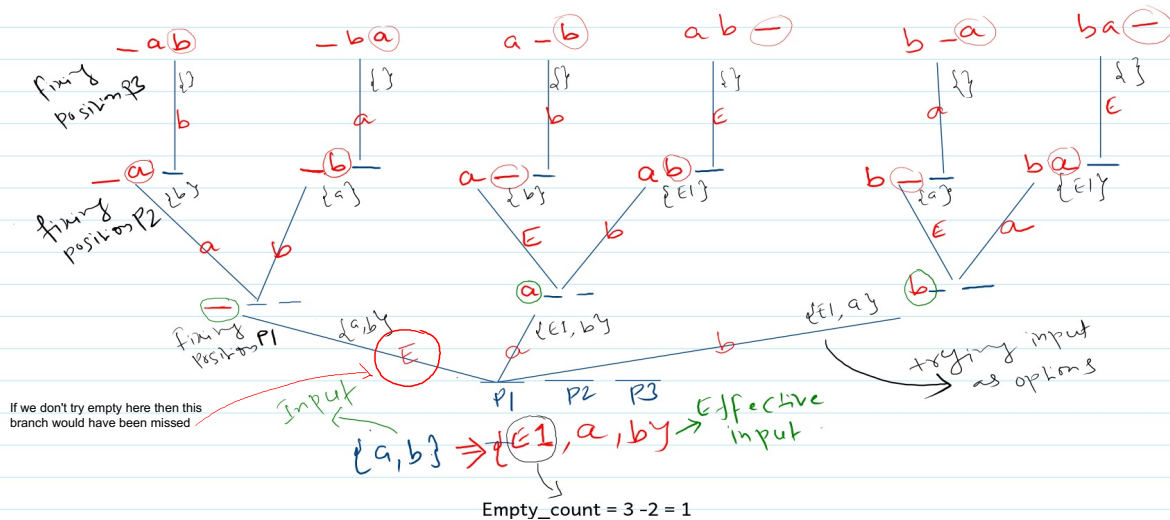 _ a b
_ b a
a _ b
a b _
b _ a
b a _
fixing
position P3
{}
{}
{}
{}
{}
{}
b
a
b
E
a
E
_ a _
_ b _
a _ _
a b _
b _ _
b a _
{b}
{a}
{b}
{E1}
{a}
{E1}
fixing
position P2
a
b
E
b
E
a
_ _ _
a _ _
b _ _
fixing
position P1
{a,b}
{E1, b}
{E1, a}
E
a
b
trying input
as options
P1 P2 P3
If we don't try empty here then this
branch would have been missed
Input
Effective
input
{a,b} ⇒ {E1, a, b}
Empty_count = 3 -2 = 1